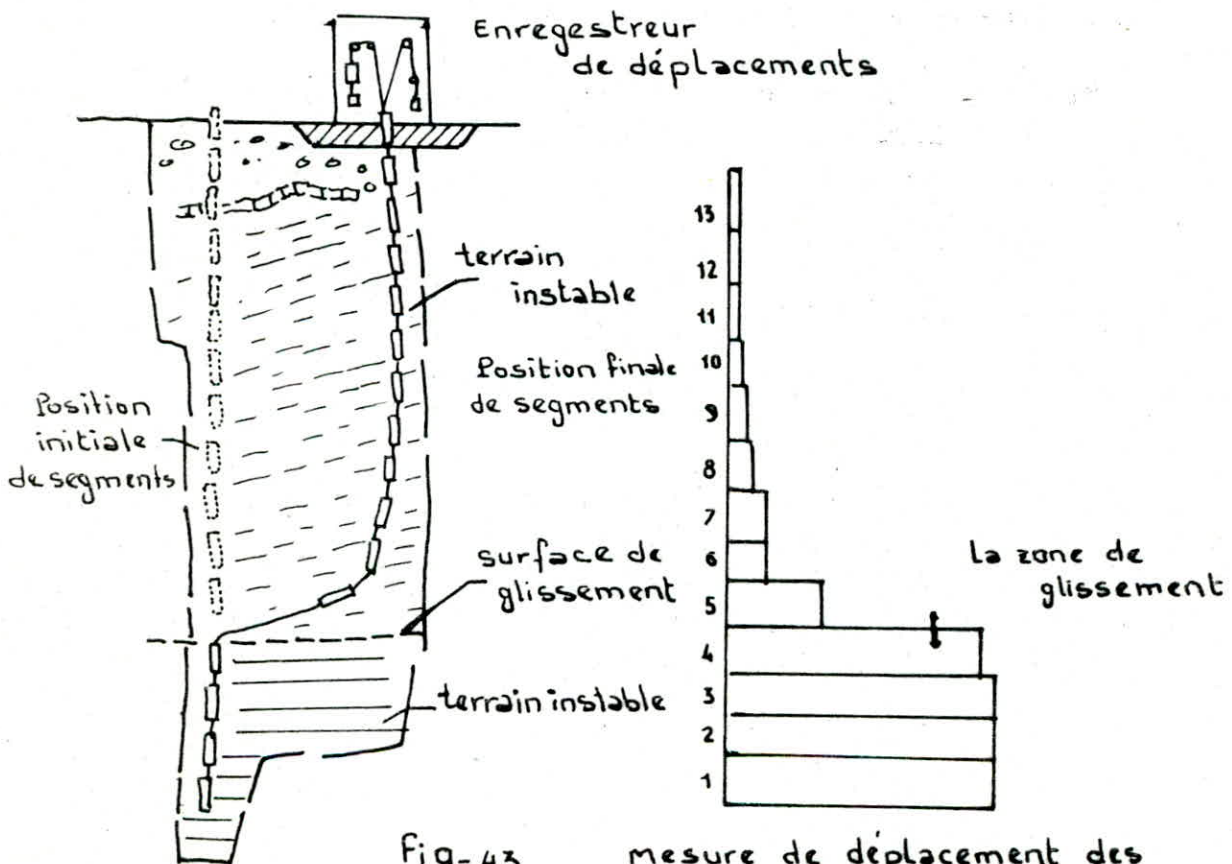 Enregestreur
de déplacements
terrain
instable
Position finale
de segments
Position
initiale
de segments
surface de
glissement
terrain instable
13
12
11
10
9
8
7
6
5
4
3
2
1
la zone de
glissement
Fig-43
mesure de déplacement des